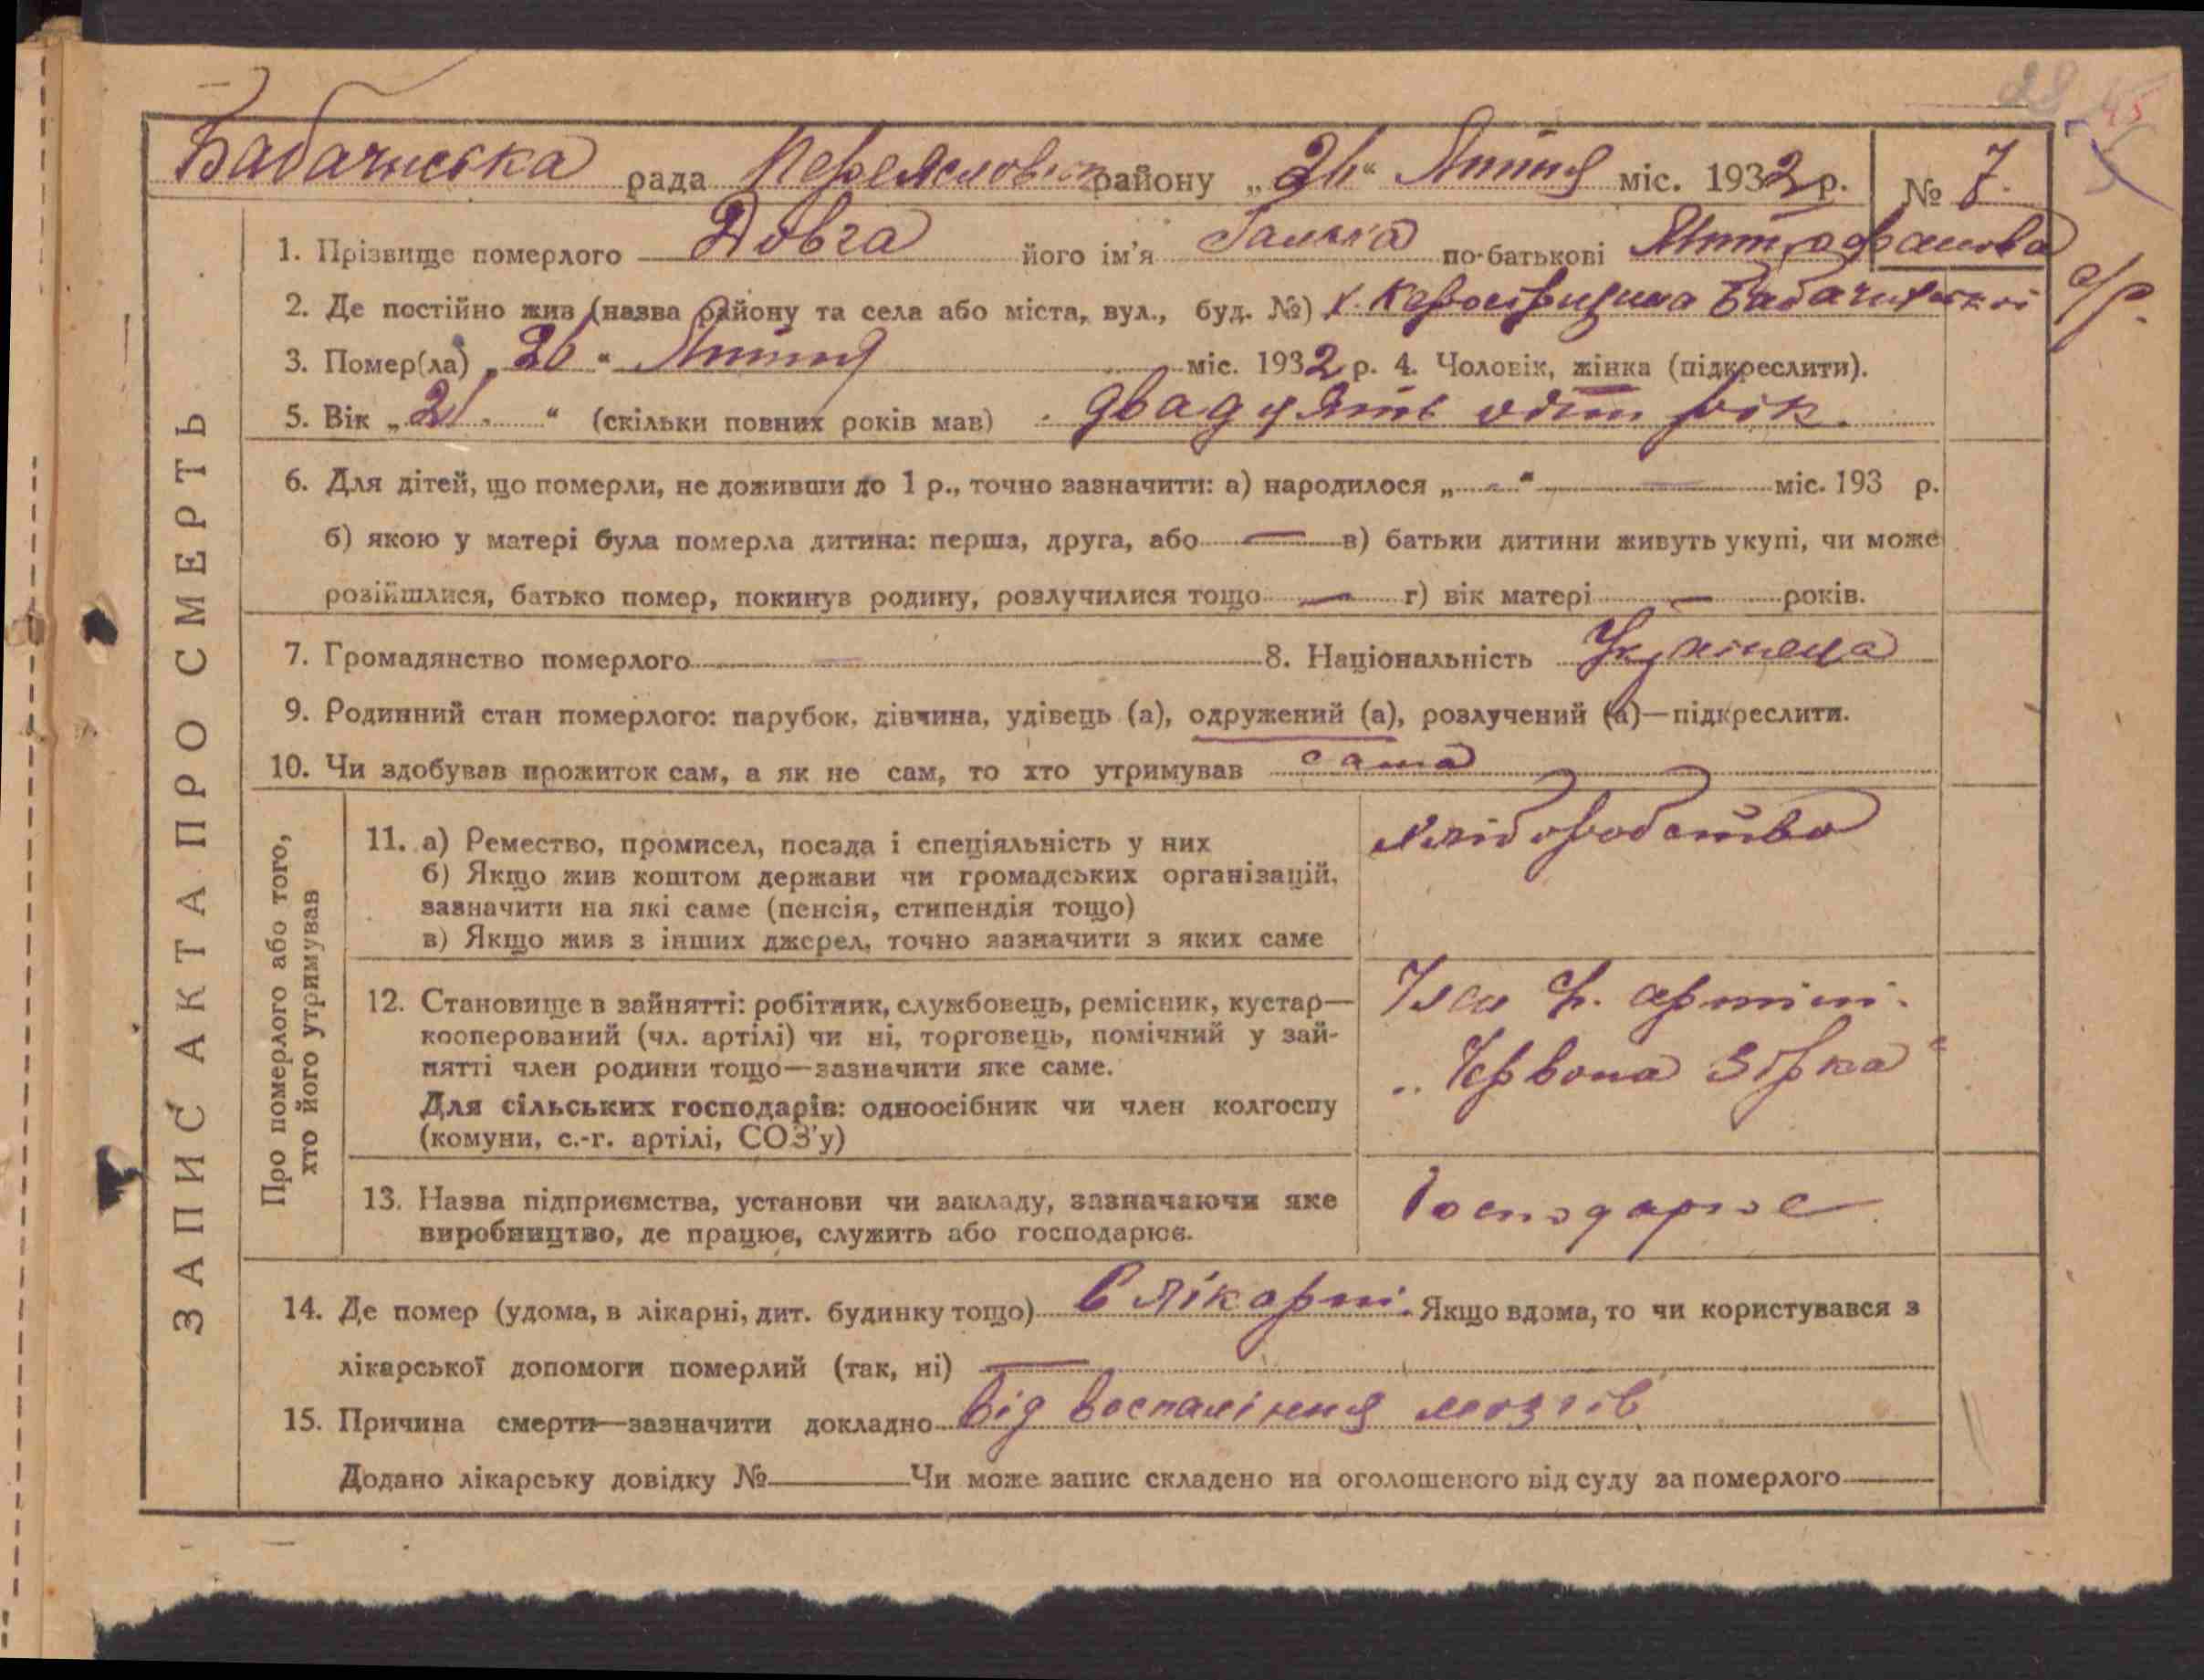 Бабачиська рада Переяславськ району „26“ Липня міс. 1932 р. № 7.
1. Прізвище померлого Довга його ім'я Галька по-батькові Митрофанова
2. Де постійно жив (назва району та села або міста, вул., буд. №) х.
3. Помер(ла) „26“ Липня міс. 1932 р. 4. Чоловік, жінка (підкреслити).
5. Вік „21“ (скільки повних років мав) двадцять один рік.
6. Для дітей, що померли, не доживши до 1 р., точно зазначити: а) народилося „ - “ — міс. 193 р.
б) якою у матері була померла дитина: перша, друга, або — в) батьки дитини живуть укупі, чи може
розійшлися, батько помер, покинув родину, розлучилися тощо — г) вік матері — років.
7. Громадянство померлого — 8. Національність Українца
9. Родинний стан померлого: парубок, дівчина, удівець (а), одружений (а), розлучений (а)—підкреслити.
10. Чи здобував прожиток сам, а як не сам, то хто утримував сама
ЗАПИС АКТА ПРО СМЕРТЬ
Про померлого або того,
хто його утримував
11. а) Ремество, промисел, посада і спеціяльність у них
б) Якщо жив коштом держави чи громадських організацій,
зазначити на які саме (пенсія, стипендія тощо)
в) Якщо жив з інших джерел, точно зазначити з яких саме
хліборобство
12. Становище в зайнятті: робітник, службовець, ремісник, кустар—
кооперований (чл. артілі) чи ні, торговець, помічний у зай-
нятті член родини тощо—зазначити яке саме.
Для сільських господарів: одноосібник чи член колгоспу
(комуни, с.-г. артілі, СОЗ'у)
артілі.
„Червона Зірка“
13. Назва підприємства, установи чи закладу, зазначаючи яке
виробництво, де працює, служить або господарює.
Господарює
14. Де помер (удома, в лікарні, дит. будинку тощо) В лікарні. Якщо вдома, то чи користувався з
лікарської допомоги померлий (так, ні) —
15. Причина смерти—зазначити докладно від воспаління мозгів
Додано лікарську довідку № — Чи може запис складено на оголошеного від суду за померлого —